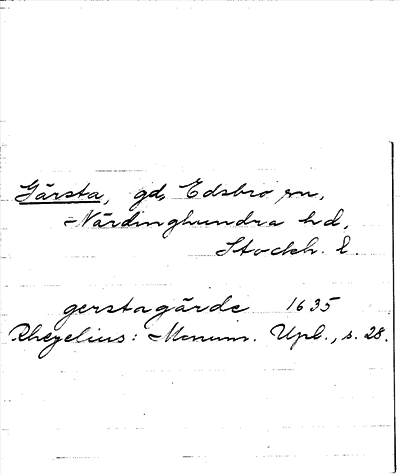 Gärsta, gd, Edsbro sn,
Närdinghundra hd,
Stockh. l.
gerstagärde 1635
Rhezelius: Monum. Upl., s. 28.